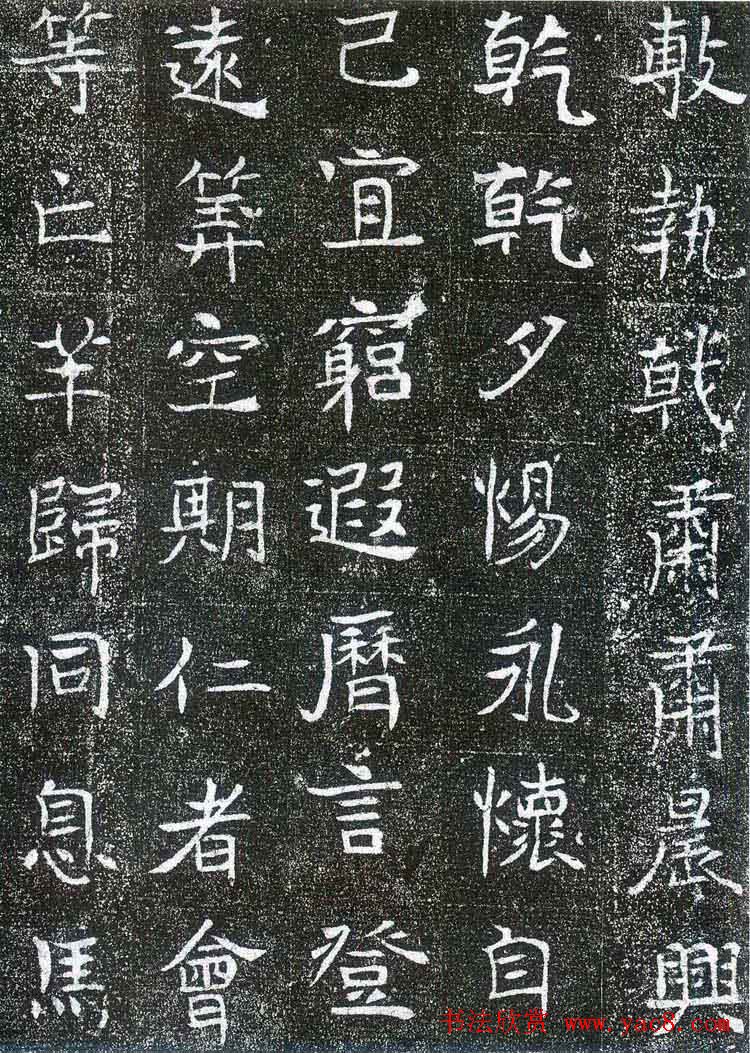 敷執戟肅肅晨興
乾乾夕惕永懷自
己宜窮遐曆言登
遠筭空期仁者會
等亡羊歸同息馬
书法欣赏 www.yac8.com